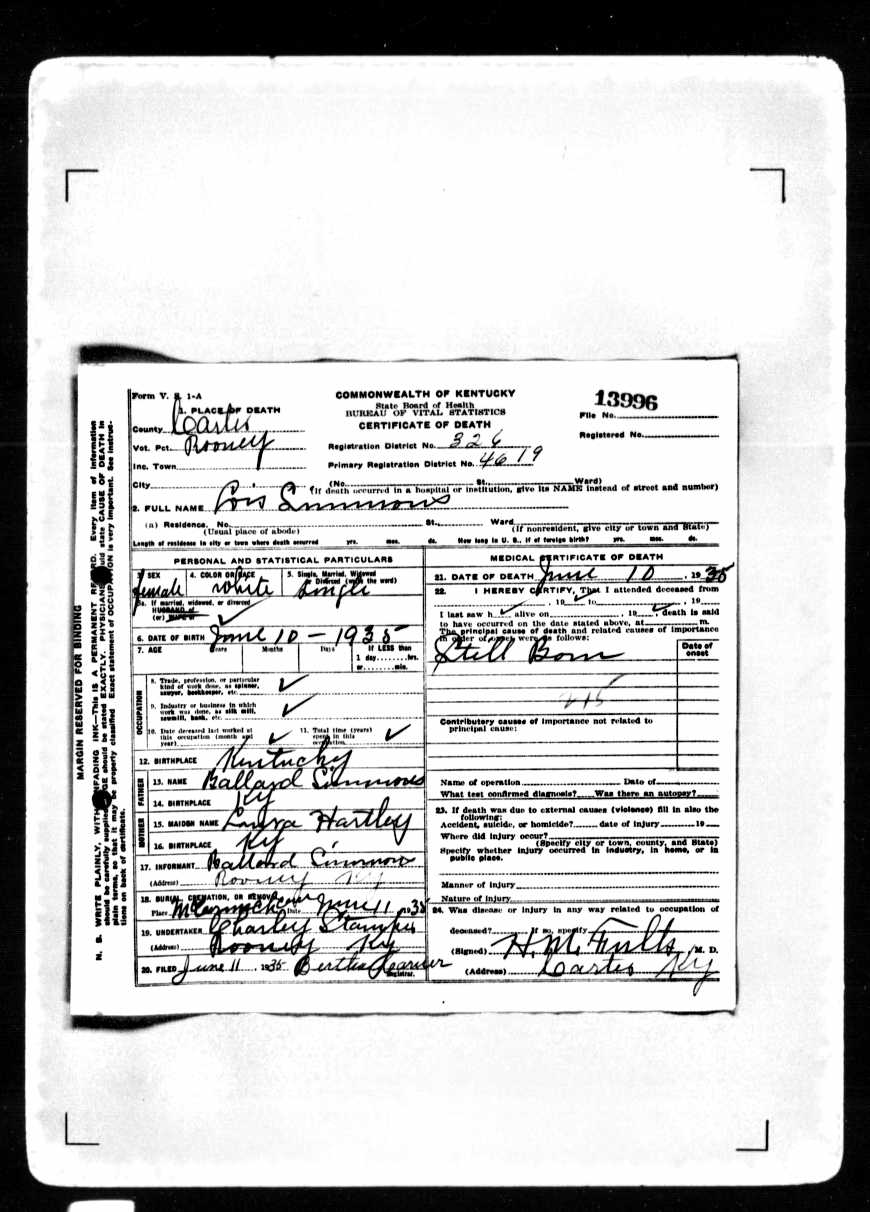 Form V. S. 1-A
COMMONWEALTH OF KENTUCKY
State Board of Health
BUREAU OF VITAL STATISTICS
CERTIFICATE OF DEATH
13996
File No.
Registered No.
1. PLACE OF DEATH
County Carter
Vot. Pct. Rooney
Inc. Town
City
Registration District No. 326
Primary Registration District No. 4619
(No. St., Ward)
(If death occurred in a hospital or institution, give its NAME instead of street and number)
2. FULL NAME Lois Simmons
(a) Residence. No. St., Ward
(Usual place of abode) (If nonresident, give city or town and State)
Length of residence in city or town where death occurred yrs. mos. ds. How long in U. S., if of foreign birth? yrs. mos. ds.
PERSONAL AND STATISTICAL PARTICULARS
3. SEX female
4. COLOR OR RACE White
5. Single, Married, Widowed or Divorced (write the word) Single
5a. If married, widowed, or divorced
HUSBAND of
(or) WIFE of
6. DATE OF BIRTH June 10 - 1935
7. AGE Years Months Days If LESS than
1 day hrs.
or min.
OCCUPATION
8. Trade, profession, or particular
kind of work done, as spinner,
sawyer, bookkeeper, etc. ✓
9. Industry or business in which
work was done, as silk mill,
sawmill, bank, etc. ✓
10. Date deceased last worked at
this occupation (month and
year) ✓
11. Total time (years)
spent in this
occupation ✓
12. BIRTHPLACE Kentucky
FATHER
13. NAME Ballard Simmons
14. BIRTHPLACE Ky
MOTHER
15. MAIDEN NAME Hartley
16. BIRTHPLACE Ky
17. INFORMANT Ballard Simmons
(Address) Rooney Ky
18. BURIAL, CREMATION, OR REMOVAL
Place Date June 11 1935
19. UNDERTAKER Charley Stamper
(Address) Rooney Ky
20. FILED June 11, 1935 Bertha
Registrar.
MEDICAL CERTIFICATE OF DEATH
21. DATE OF DEATH June 10, 1935
22. I HEREBY CERTIFY, That I attended deceased from
, 19 to , 19
I last saw h alive on , 19 , death is said
to have occurred on the date stated above, at m.
The principal cause of death and related causes of importance
in order of onset were as follows:
Date of
onset
Still Born
Contributory causes of importance not related to
principal cause:
Name of operation Date of
What test confirmed diagnosis? Was there an autopsy?
23. If death was due to external causes (violence) fill in also the
following:
Accident, suicide, or homicide? date of injury 19
Where did injury occur?
(Specify city or town, county, and State)
Specify whether injury occurred in industry, in home, or in
public place.
Manner of injury
Nature of injury
24. Was disease or injury in any way related to occupation of
deceased? If so, specify
(Signed) H. M. Fults, M. D.
(Address) Carter Ky
MARGIN RESERVED FOR BINDING
N. B. WRITE PLAINLY, WITH UNFADING INK—THIS IS A PERMANENT RECORD. Every item of information
should be carefully supplied. AGE should be stated EXACTLY. PHYSICIANS should state CAUSE OF DEATH in
plain terms, so that it may be properly classified. Exact statement of OCCUPATION is very important. See instruc-
tions on back of certificate.